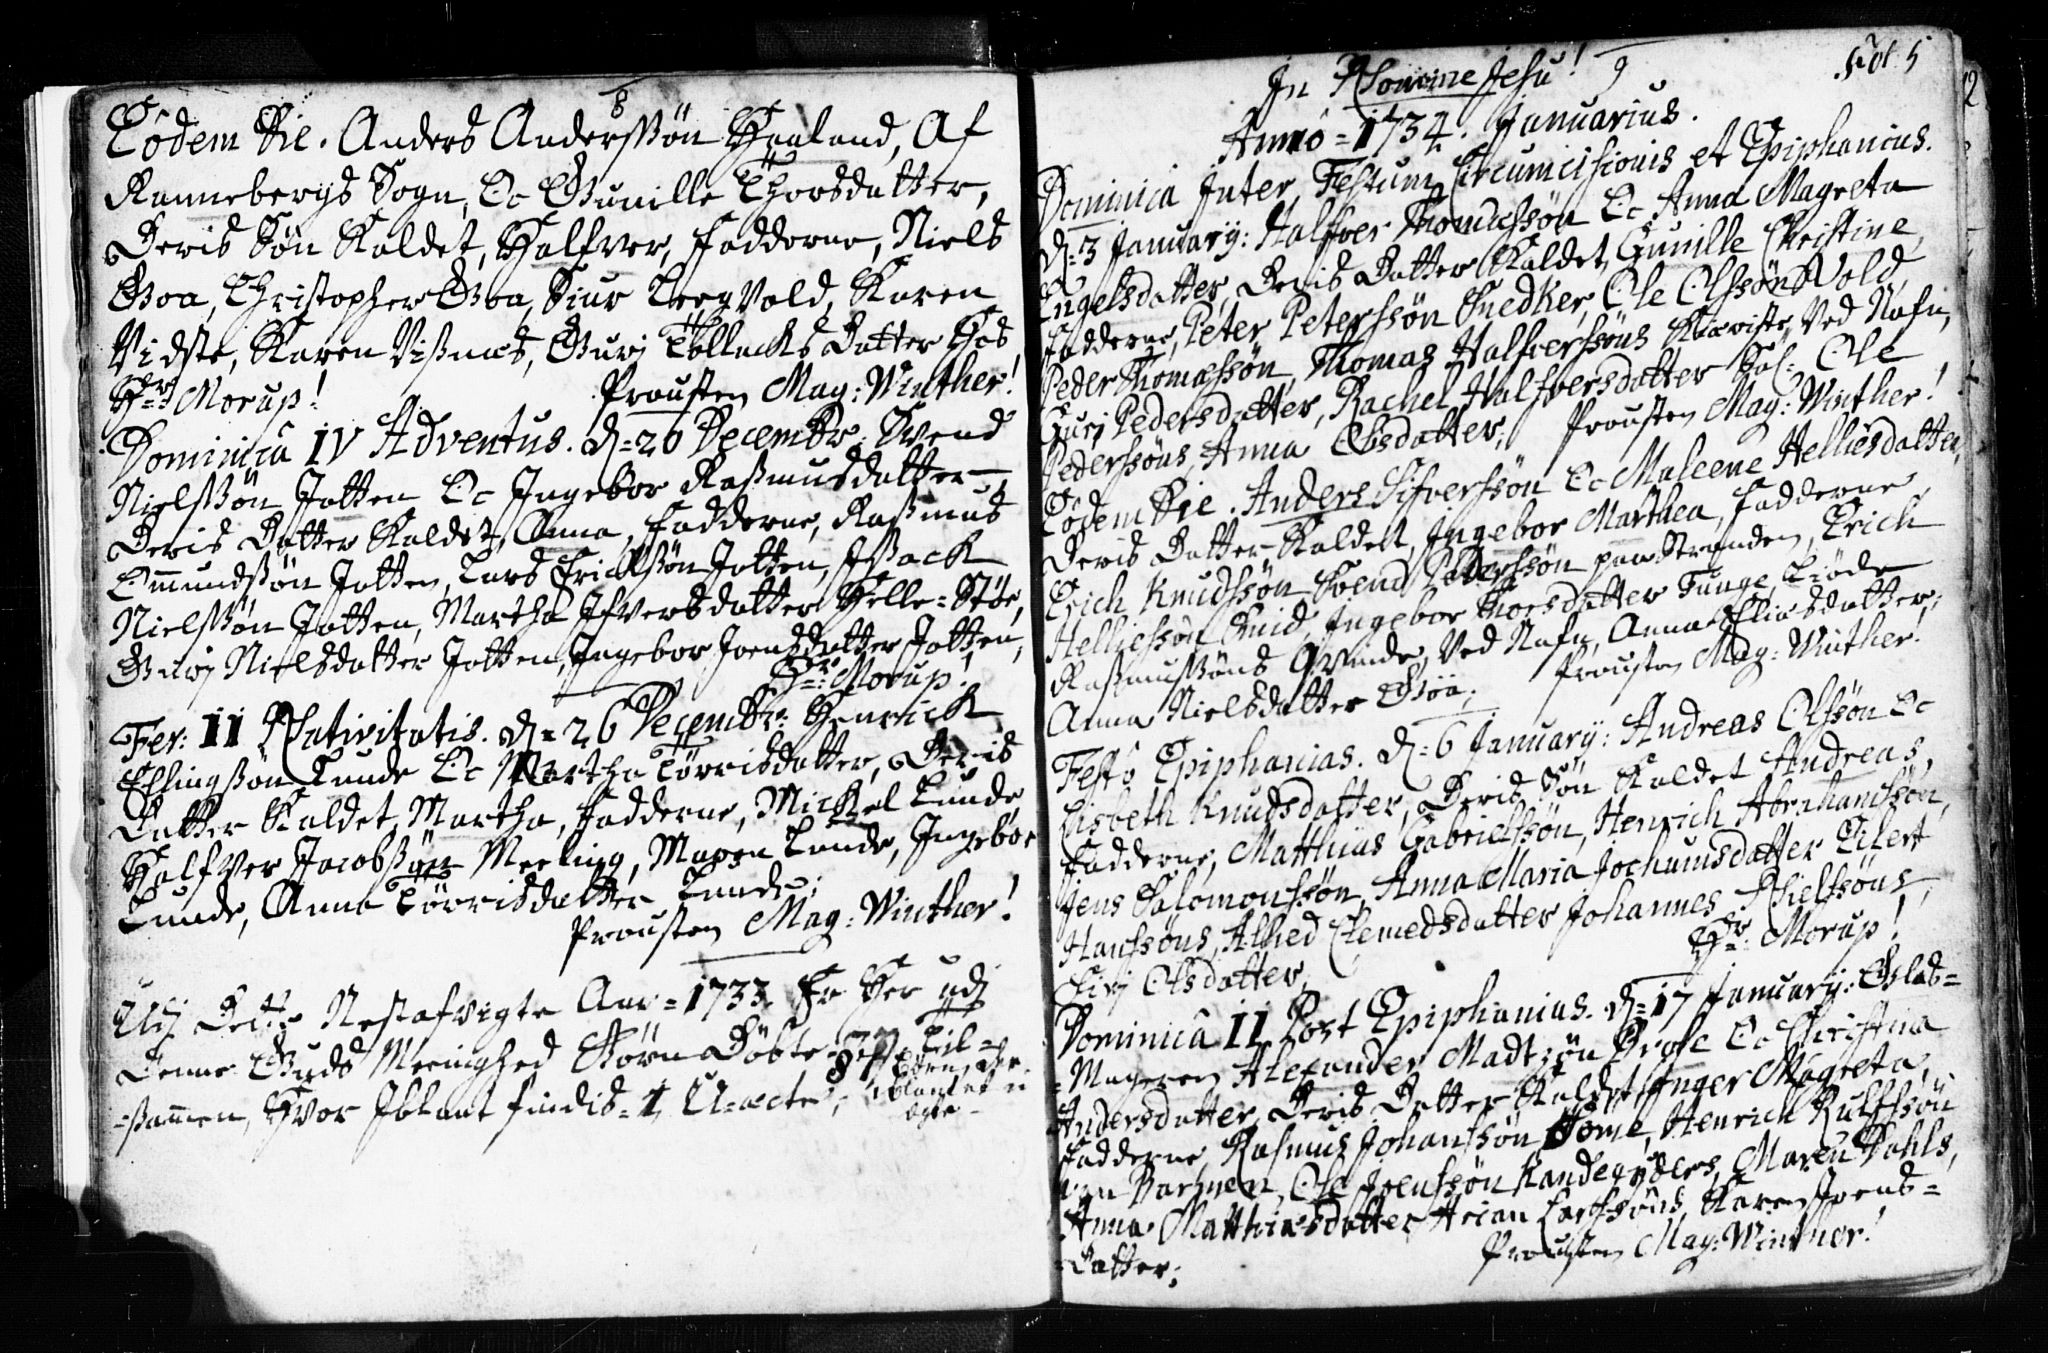 8
Eodem Die. Anders Anderssøn Haaland, Af
Rannebergs Sogn, Oc Gunille Thorsdatter,
Deris Søn Kaldet, Halfver, Fadderne, Niels
Goa, Christopher Goa, Siur Leegvold, Karen
Vidste, Karen Vißnæs, Gurj Tollacks Datter Hos
Hr: Morup! Prousten Mag: Winther!
Dominica IV Adventus. D=20 Decembr: Svend
Nielssøn Jotten Oc Jngebor Raßmusdatter
Deris Datter Kaldet, Anna, Fadderne, Raßmus
Omundssøn Jotten, Lars Erichssøn Jotten, Jssack
Nielssøn Jotten, Martha Jfversdatter Helle-Støe,
Gurj Nielsdatter Jotten, Jngebor Joensdatter Jotten,
Hr: Morup!
Fer: II Nativitatis. D=26 Decembr: Henrick
Ellingssøn Lunde Oc Martha Tørrisdatter, Deris
Datter Kaldet, Martha, Fadderne, Mickel Lunde
Halfver Jacobssøn Meeling, Maren Lunde, Jngebor
Lunde, Anna Tørrisdatter Lunde;
Prousten Mag: Winther!
Udj Dette Nestafvigte Aar=1733 Er Her udj
Denne Guds Meenighed Børn Døbte=87 Til=
=sammen, Hvor Jblant findis=1 U=ægte;
Fol: 5
Jn Nomine Jesu! 9
Anno=1734. Januarius.
Dominica Inter Festum Circumcisionis et Epiphanias.
D=3 January: Halfver Thomassøn Oc Anna Magreta
Engelsdatter, Deris Datter Kaldet, Gunille Christine,
Fadderne, Peter Peterssøn Snedker, Ole Olssøn Vold,
Peder Thomassøn, Thomas Halfverssøns Kiæriste, Ved Nafn,
Guri Pedersdatter, Rachel Halfversdatter Sal: Ole
Pederssøns, Anna Olsdatter; Prousten Mag: Winther!
Eodem Die. Anders Sifverssøn Oc Maleene Helliesdatter,
Deris Datter Kaldet, Jngebor Marthea, Fadderne,
Erich Knudssøn, Svend Pederssøn paa Stranden, Erich
Helliessøn Smid, Jngebor Thorsdatter Tunge, Tiøde
Raßmussøns Qvinde, Ved Nafn, Anna Eliasdatter;
Anna Nielsdatter Goa; Prousten Mag: Winther!
Festo Epiphanias. D=6 January: Andreas Olssøn Oc
Lisbeth Knudsdatter, Deris Søn Kaldet Andreas,
Fadderne, Matthias Gabrielssøn, Henrich Abrahamssøn,
Jens Salomonssøn, Anna Maria Jochumsdatter Eilert
Hanssøns, Alhed Clemedsdatter Johannes Nielssøns,
Siri Olsdatter, Hr: Morup!
Dominica II Post Epiphanias. D=17 January: Glas=
=Mageren Alexander Madtzøn Oc Christina
Andersdatter, Deris Datter Kaldet, Jnger Magreta,
Fadderne, Rasmus Johanssøn Some, Henrich Rulfssøn
von Barmen, Ole Jvenssøn Kandegyders, Maren Dahls,
Anna Matthiasdatter Arian Larssøns, Karen Joens=
=Datter; Prousten Mag: Winther!